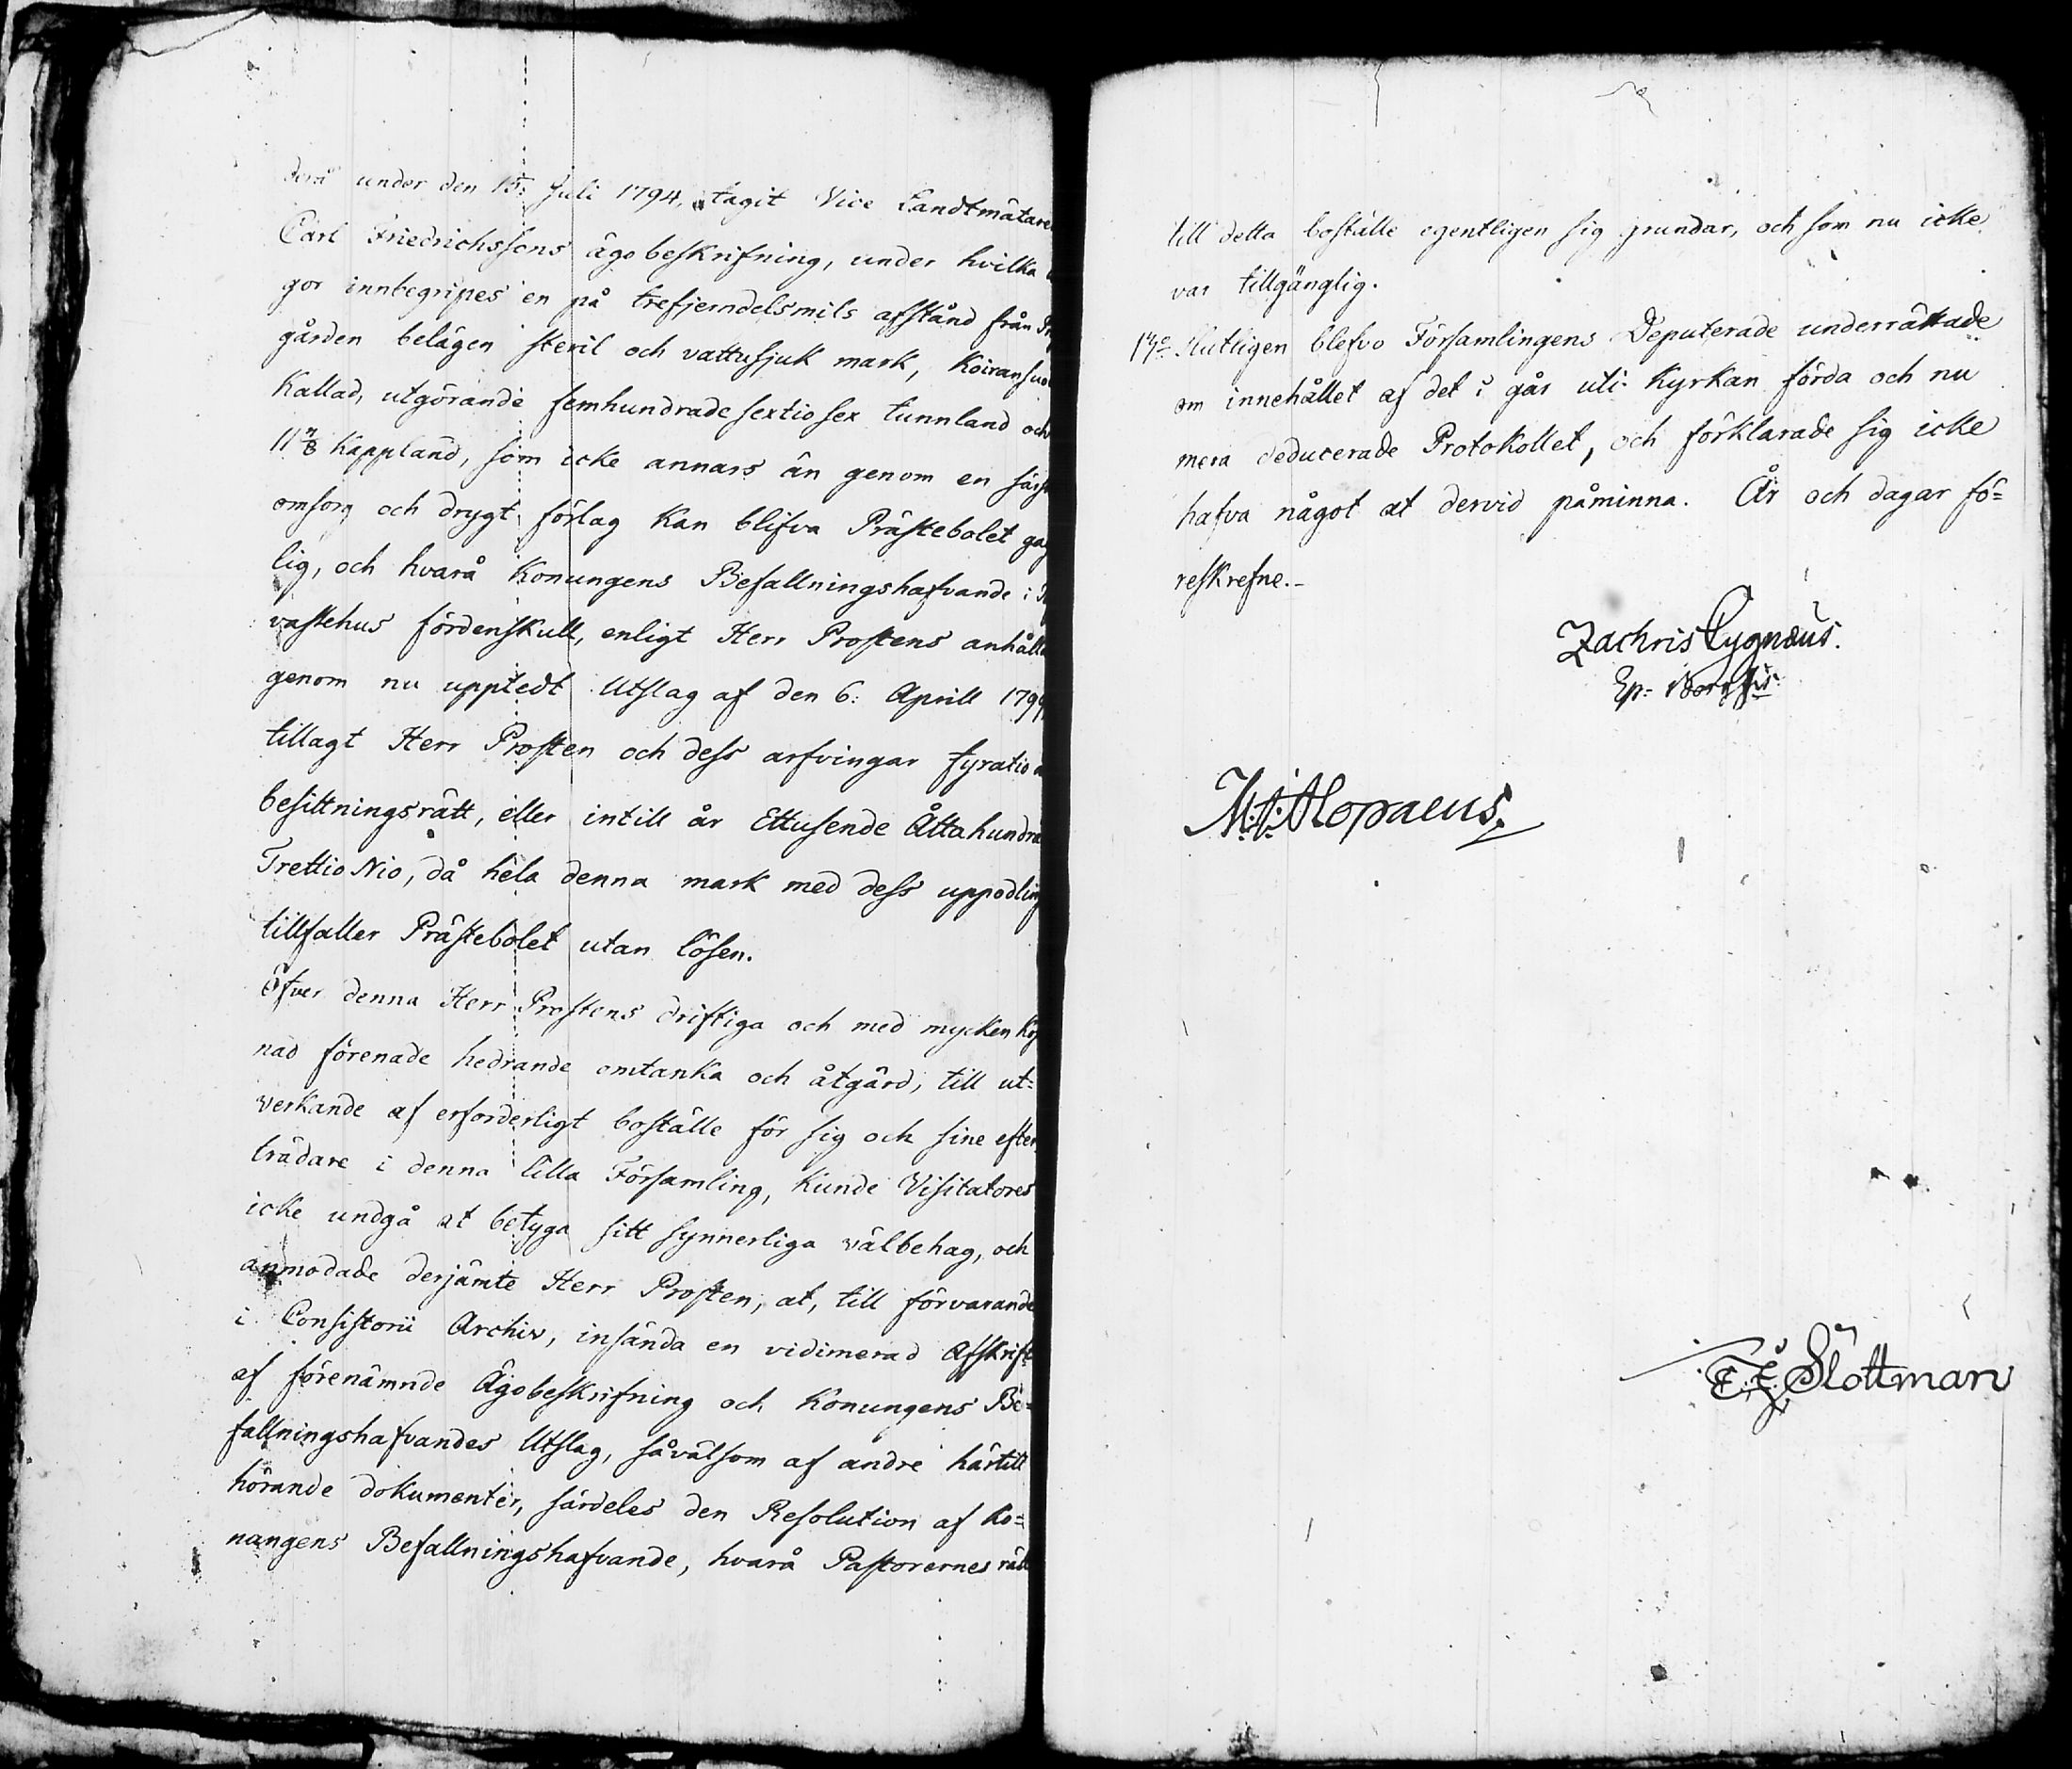 derå under den 15: Juli 1794, tagit Vice Landtmätaren
Carl Friedrichssons ägobeskrifning, under hvilka
gor innbegripes en på trefjerndelsmils afstånd från
gården belägen steril och vattusjuk mark, Koiransuo
Kallad, utgörande femhundrade sextiosex tunnland och
11 7/8 Kappland, som icke annars än genom en
omsorg och drygt förlag Kan blifva Prästebolet
lig, och hvarå Konungens Befallningshafvande i
vastehus fördenskull, enligt Herr Prostens
genom nu uppledt Utslag af den 6: Aprill 1799,
tillagt Herr Prosten och dess arfvingar fyratio
besittningsrätt, eller intill år Ettusende Åttahundra
Trettio Nio, då hela denna mark med dess uppodling
tillfaller Prästebolet utan lösen.
Öfver denna Herr Prostens driftiga och med mycken
nad förenade hedrande omtanka och åtgärd, till ut=
verkande af erforderligt boställe för sig och sine efter
trädare i denna lilla Församling, Kunde Visitatores
icke undgå at betyga sitt synnerliga välbehag, och
anmodade derjämte Herr Prosten, at, till förvarande
i Consistorii Archiv, insända en vidimerad Afskrift
af förenämnde Ägobeskrifning och Konungens Be=
fallningshafvandes Utslag, såvälsom af andre härtill
hörande dokumenter, särdeles den Resolution af Ko=
nungens Befallningshafvande, hvarå Pastorernes rätt
till detta boställe egentligen sig grundar, och som nu icke
var tillgänglig.
17º Slutligen blefvo Församlingens Deputerade underrättade
om innehållet af det i går uti Kyrkan förda och nu
mera deducerade Protokollet, och förklarade sig icke
hafva något at dervid påminna. År och dagar fö=
reskrefne.-
Zachris Cygnæus.
Ep: Borgsis:
M: Alopaeus.
Slottman